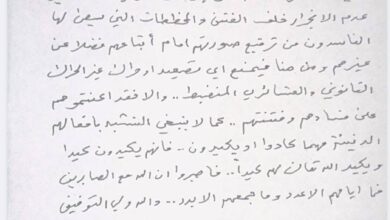 عدم الانجرار خلف الفتن والمخططات التي يسعى لها
الفاسدون من ترقيع صورتهم امام أتباعهم فضلا عن
غيرهم ومن هنا فيمنع اي تصعيد او حراك غير الحراك
القانوني والعشائري المنضبط .. والا فقد اعنتموهم
على فسادهم وفتنتهم .. مما لا ينبغي التشبه بافعالهم
الدنيئة مهما عادوا او يكيدون .. فانهم يكيدون كيدا
ويكيد الله تعالى لهم كيداً .. فاصبروا ان الله مع الصابرين
فما ايامهم الا عدد وما جمعهم الا بدد .. والله ولي التوفيق